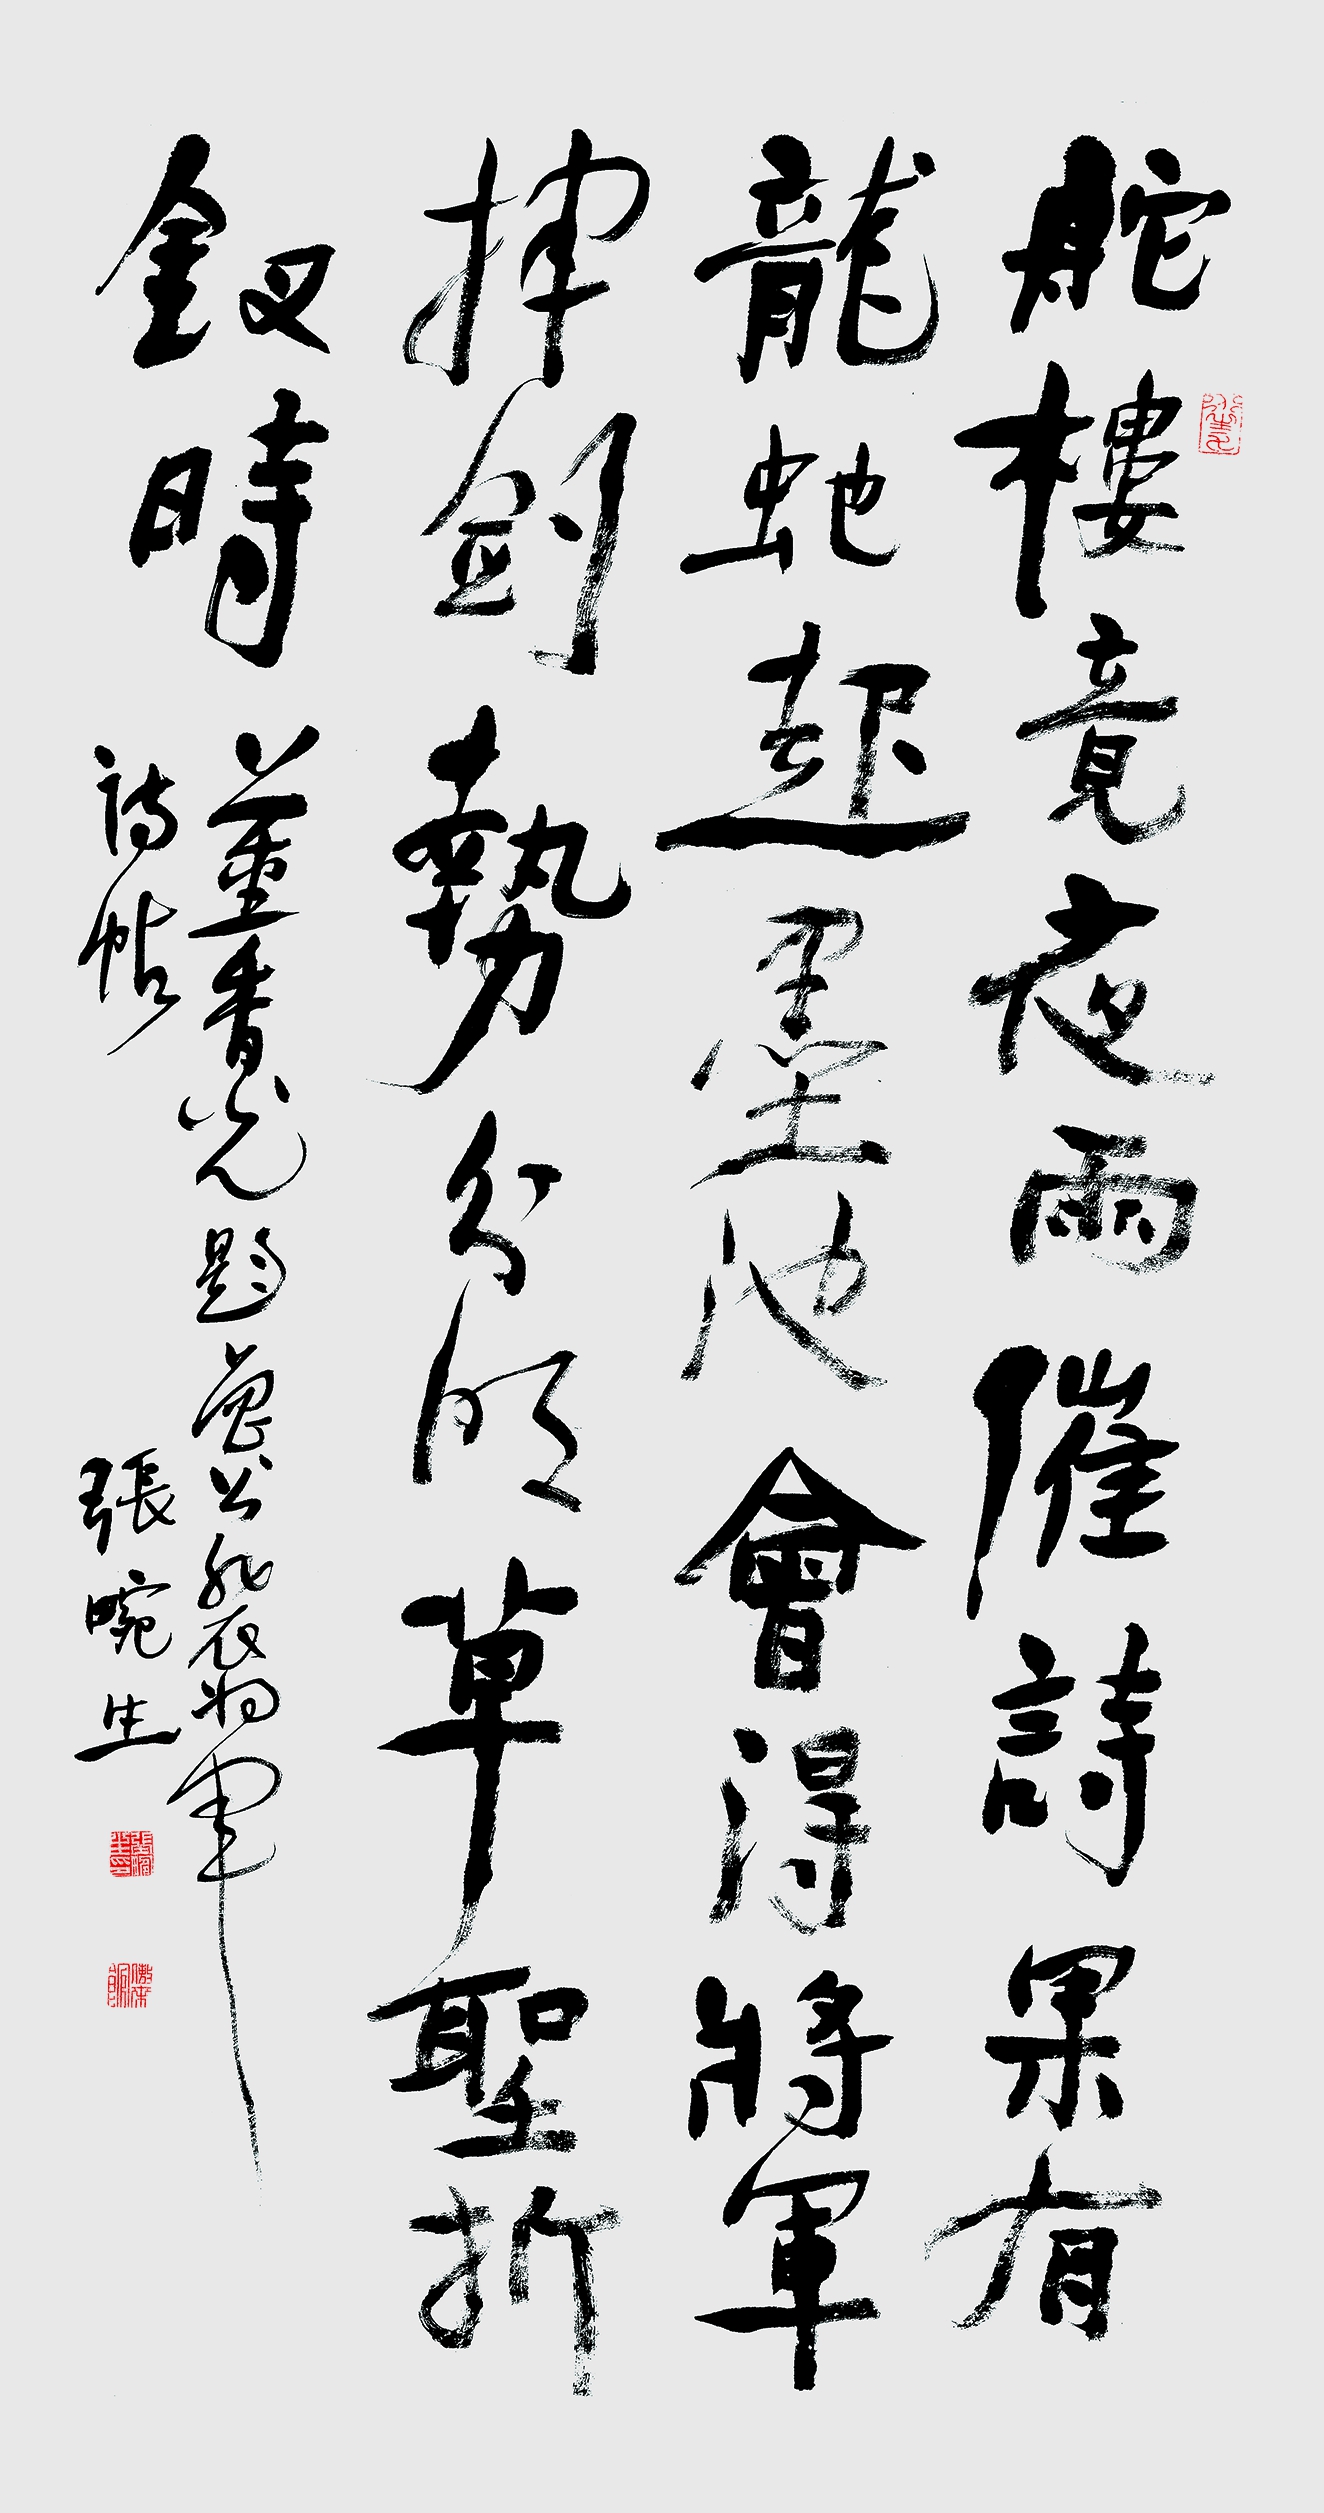 舵樓竟夜雨催詩果有
龍蛇起墨池會得將軍
揮劍勢分明草聖折
釵時
董香光題魯公裴將軍
詩帖
張晼生